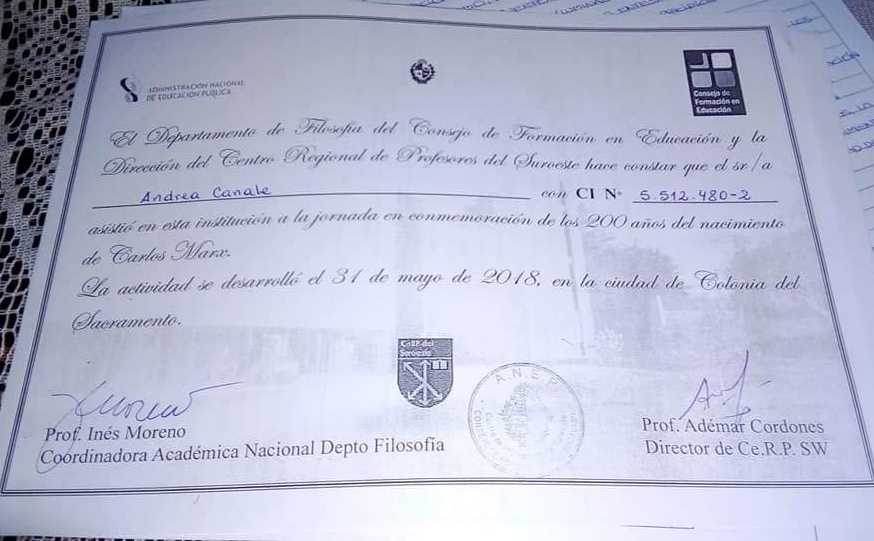 ADMINISTRACIÓN NACIONAL
DE EDUCACIÓN PÚBLICA
Consejo de
Formación en
Educación
El Departamento de Filosofía del Consejo de Formación en Educación y la
Dirección del Centro Regional de Profesores del Suroeste hace constar que el sr/a
Andrea Canale con CI Nº 5.512.480-2
asistió en esta institución a la jornada en conmemoración de los 200 años del nacimiento
de Carlos Marx.
La actividad se desarrolló el 31 de mayo de 2018, en la ciudad de Colonia del
Sacramento.
CeRP del
Suroeste
A.N.E.P.
Prof. Inés Moreno
Coordinadora Académica Nacional Depto Filosofía
Prof. Adémar Cordones
Director de Ce.R.P. SW